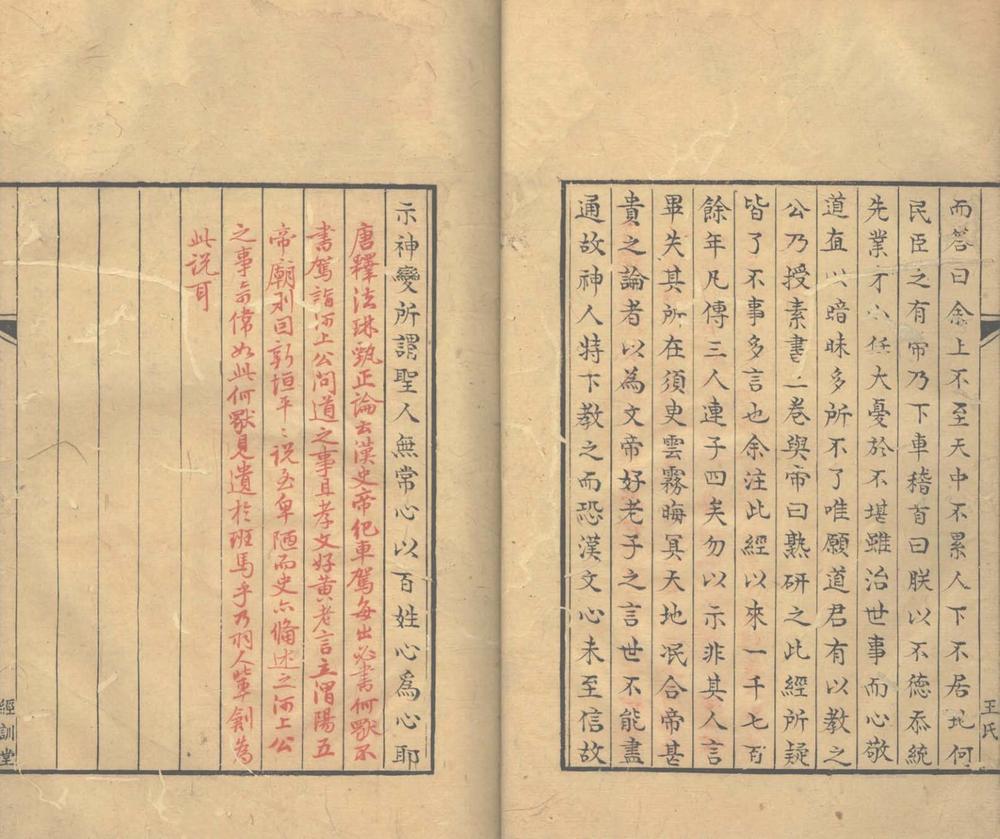 而答曰余上不至天中不累人下不居地何
民臣之有帝乃下車稽首曰朕以不德忝統
先業才小任大憂於不堪雖治世事而心敬
道直以暗昧多所不了唯願道君有以教之
公乃授素書二卷與帝曰熟研之此經所疑
皆了不事多言也余注此經以來一千七百
餘年凡傳三人連子四矣勿以示非其人言
畢失其所在須臾雲霧晦冥天地泯合帝甚
貴之論者以為文帝好老子之言世不能盡
通故神人特下教之而恐漢文心未至信故
王氏
示神變所謂聖人無常心以百姓心為心耶
唐釋法琳甄正論云漢史帝紀車駕每出必書何獨不
書駕詣河上公問道之事且孝文好黃老言立渭陽五
帝廟永回新垣平〻說至卑陋而史亦備述之河上公
之事奇偉如此何獨見遺於班馬乎乃羽人輩創為
此說耳
經訓堂